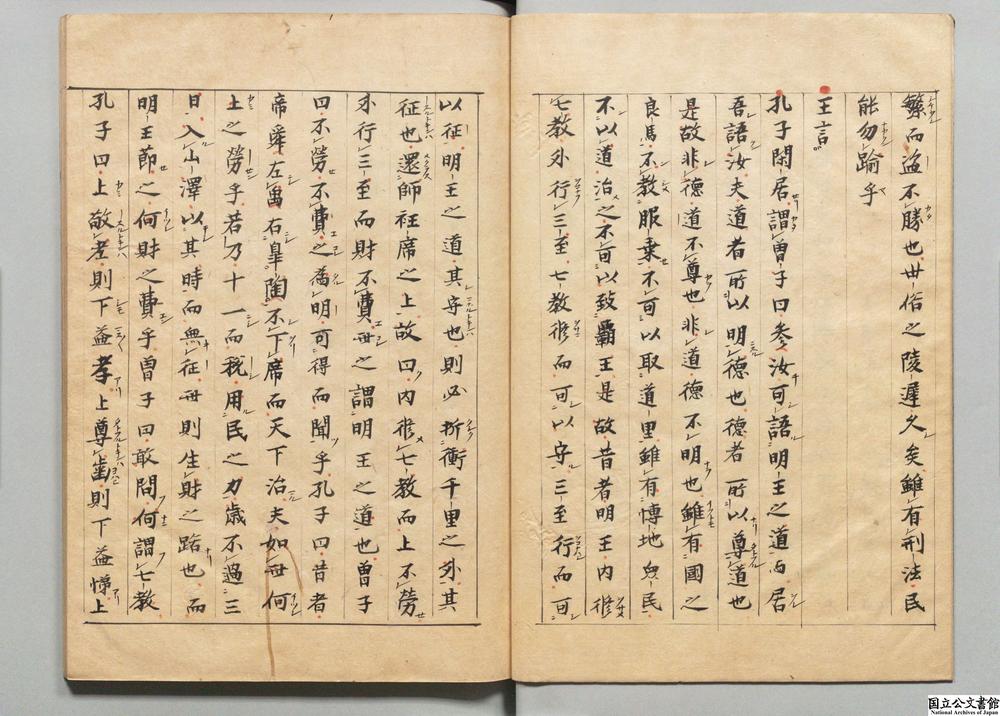 繁而盗不勝也世俗之陵遲久矣雖有刑法民
能勿踰乎
王言
孔子閑居謂曾子曰参汝可語明王之道与居
吾語汝夫道者所以明德也德者所以尊道也
是故非德道不尊也非道德不明也雖有國之
良馬不教服乗不可以取道里雖有博地衆民
不以道治之不可以致覇王是故昔者明王内修
七教外行三至七教修而可以守三至行而可
以征明王之道其守也則必折衝千里之外其
征也還師衽席之上故曰内修七教而上不勞
外行三至而財不費此之謂明王之道也曽子
曰不勞不費之為明可得而聞乎孔子曰昔者
帝舜左禹右皐陶不下席而天下治夫如此何
上之勞乎若乃十一而税用民之力歳不過三
日入山澤以其時而無征此則生財之路也而
明王節之何財之費乎曽子曰敢問何謂七教
孔子曰上敬老則下益孝上尊歯則下益悌上
国立公文書館
National Archives of Japan